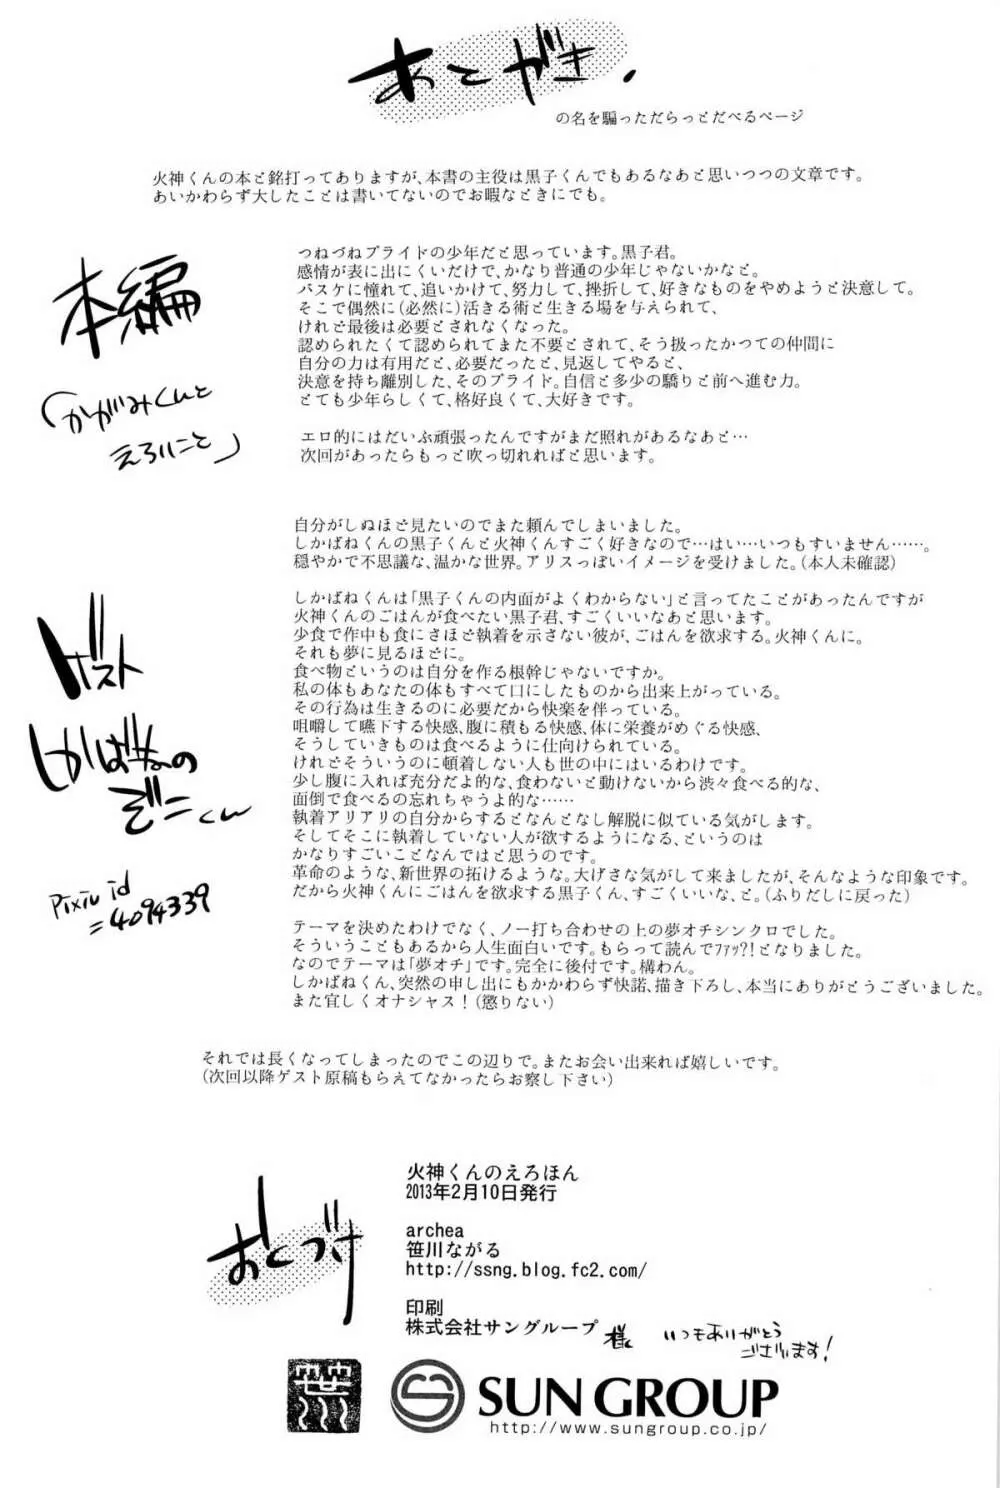 あとがき.
の名を騙っただらっとだべるページ
火神くんの本と銘打ってありますが、本書の主役は黒子くんでもあるなあと思いつつの文章です。
あいかわらず大したことは書いてないのでお暇なときにでも。
本編
「かがみくんと
えろいこと」
つねづねプライドの少年だと思っています。黒子君。
感情が表に出にくいだけで、かなり普通の少年じゃないかなと。
バスケに憧れて、追いかけて、努力して、挫折して、好きなものをやめようと決意して。
そこで偶然に(必然に)活きる術と生きる場を与えられて、
けれど最後は必要とされなくなった。
認められたくて認められてまた不要とされて、そう扱ったかつての仲間に
自分の力は有用だと、必要だったと、見返してやると、
決意を持ち離別した、そのプライド。自信と多少の驕りと前へ進む力。
とても少年らしくて、格好良くて、大好きです。
エロ的にはだいぶ頑張ったんですがまだ照れがあるなあと…
次回があったらもっと吹っ切れればと思います。
ゲスト
しかばねの
ぞにくん
Pixiv id
=4094339
自分がしぬほど見たいのでまた頼んでしまいました。
しかばねくんの黒子くんと火神くんすごく好きなので…はい…いつもすいません……。
穏やかで不思議な、温かな世界。アリスっぽいイメージを受けました。(本人未確認)
しかばねくんは「黒子くんの内面がよくわからない」と言ってたことがあったんですが
火神くんのごはんが食べたい黒子君、すごくいいなあと思います。
少食で作中も食にさほど執着を示さない彼が、ごはんを欲求する。火神くんに。
それも夢に見るほどに。
食べ物というのは自分を作る根幹じゃないですか。
私の体もあなたの体もすべて口にしたものから出来上がっている。
その行為は生きるのに必要だから快楽を伴っている。
咀嚼して嚥下する快感、腹に積もる快感、体に栄養がめぐる快感、
そうしていきものは食べるように仕向けられている。
けれどそういうのに頓着しない人も世の中にはいるわけです。
少し腹に入れば充分だよ的な、食わないと動けないから渋々食べる的な、
面倒で食べるの忘れちゃうよ的な……
執着アリアリの自分からするとなんとなし解脱に似ている気がします。
そしてそこに執着していない人が欲するようになる、というのは
かなりすごいことなんではと思うのです。
革命のような、新世界の拓けるような。大げさな気がして来ましたが、そんなような印象です。
だから火神くんにごはんを欲求する黒子くん、すごくいいな、と。(ふりだしに戻った)
テーマを決めたわけでなく、ノー打ち合わせの上の夢オチシンクロでした。
そういうこともあるから人生面白いです。もらって読んでﾌｧｯ?!となりました。
なのでテーマは「夢オチ」です。完全に後付です。構わん。
しかばねくん、突然の申し出にもかかわらず快諾、描き下ろし、本当にありがとうございました。
また宜しくオナシャス！(懲りない)
それでは長くなってしまったのでこの辺りで。またお会い出来れば嬉しいです。
(次回以降ゲスト原稿もらえてなかったらお察し下さい)
おくづけ
火神くんのえろほん
2013年2月10日発行
archea
笹川ながる
http://ssng.blog.fc2.com/
印刷
株式会社サングループ 様 いつもありがとう
ございます!
SUN GROUP
http://www.sungroup.co.jp/